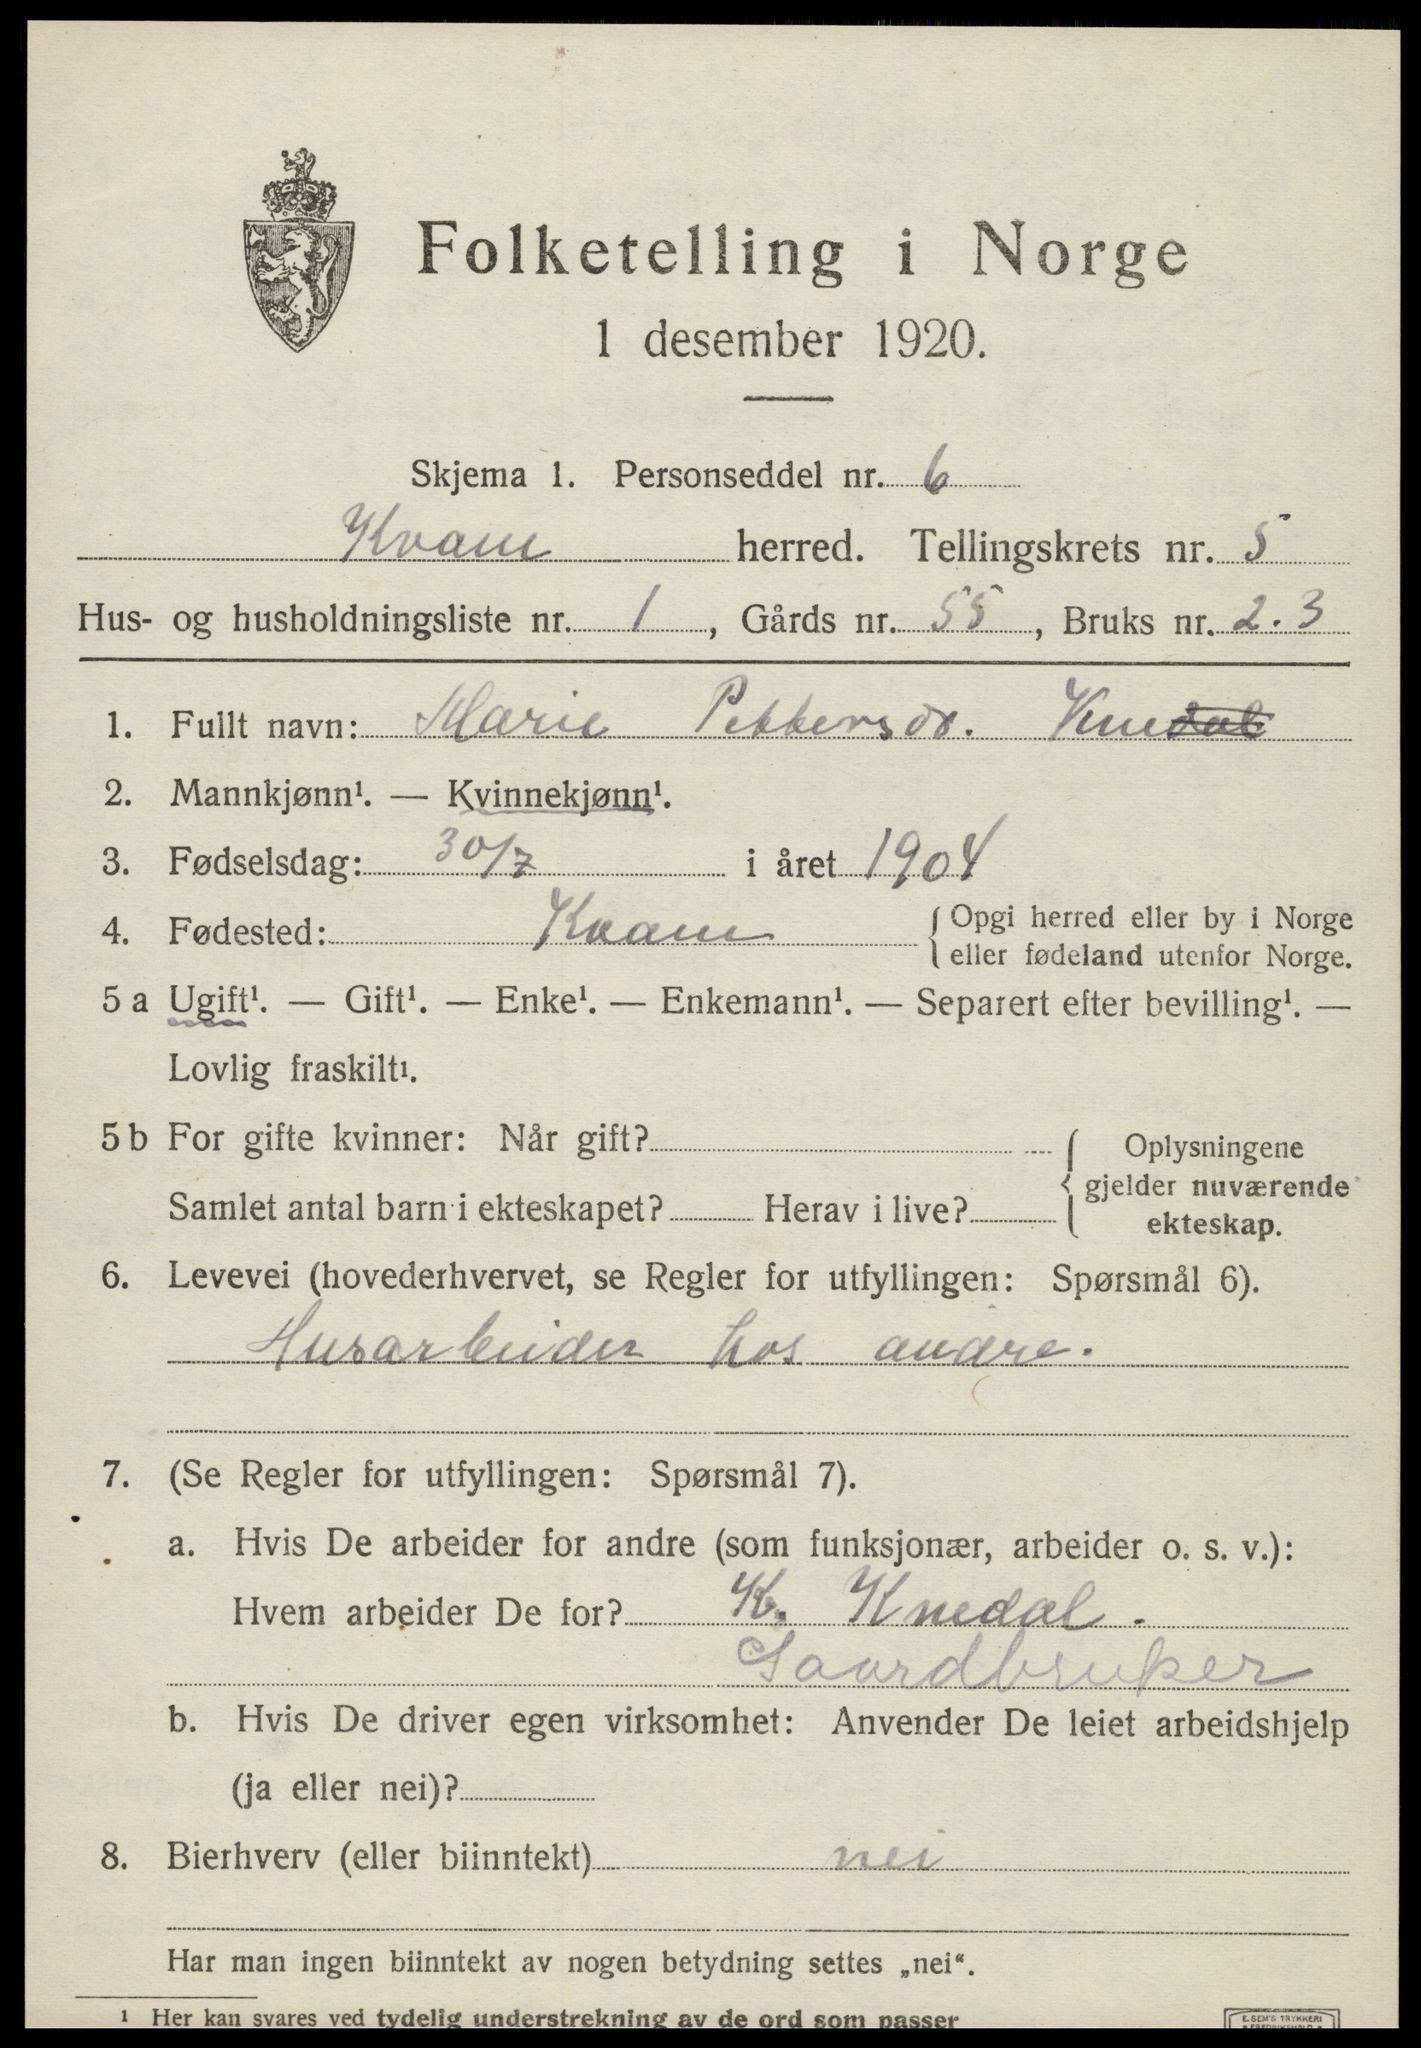 Folketelling i Norge
1 desember 1920.
Skjema 1. Personseddel nr. 6
Kvam herred. Tellingskrets nr. 5
Hus- og husholdningsliste nr. 1, Gårds nr. 55, Bruks nr. 2.3
1. Fullt navn: Marie Pettersdr.
2. Mannkjønn¹. — Kvinnekjønn¹.
3. Fødselsdag: 30/7 i året 1904
4. Fødested: Kvam { Opgi herred eller by i Norge
eller fødeland utenfor Norge.
5 a Ugift¹. — Gift¹. — Enke¹. — Enkemann¹. — Separert efter bevilling¹. —
Lovlig fraskilt¹.
5 b For gifte kvinner: Når gift? { Oplysningene
gjelder nuværende
Samlet antal barn i ekteskapet? Herav i live?
ekteskap.
6. Levevei (hovederhvervet, se Regler for utfyllingen: Spørsmål 6).
Husarbeider hos andre.
7. (Se Regler for utfyllingen: Spørsmål 7).
a. Hvis De arbeider for andre (som funksjonær, arbeider o. s. v.):
Hvem arbeider De for? K. Knedal.
Gaardbruker
b. Hvis De driver egen virksomhet: Anvender De leiet arbeidshjelp
(ja eller nei)?
8. Bierhverv (eller biinntekt) nei
Har man ingen biinntekt av nogen betydning settes „nei“.
¹ Her kan svares ved tydelig understrekning av de ord som passer
E. SEM'S TRYKKERI
FREDRIKSHALD